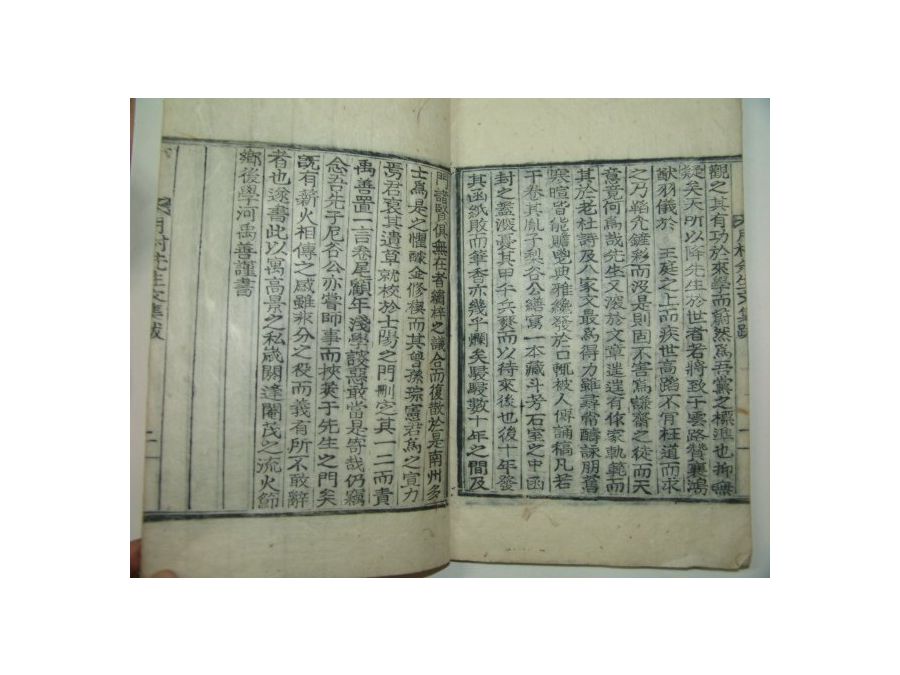 月村先生文集跋
觀之其有功於來學而蔚然爲吾黨之標準也抑無
疑矣天所以降先生於世者若將致于雲路贊襄鴻
猷羽儀於 王庭之上而疾世高蹈不肯枉道而求
之乃韜光鏟彩而沒是則固不害爲之從而天
意竟何爲哉先生又深於文章迷迷有作家軌範而
其於老杜詩及八家文最爲得力雖尋常酬詠朋舊
寒暄皆能贍典雅纔發於口輒被人傳誦稿凡若
干卷其胤子梨谷公繕寫一本藏斗芳石室之中函
封之蓋深憂其甲午兵燹而以待來後也後十年發
其函紙敗而筆香亦幾乎爛矣駸駸數十年之間及
門諸賢俱無在者繡梓之議合而復散於是南州多
士爲是之懼醵金修稧而其曾孫琮憲君爲之宣力
焉君哀其遺草就校於士陽之門刪定其一二而責
禹善置一言卷尾顧年淺學諛惡敢當是寄哉仍竊
念吾先子尼谷公亦嘗師事而挾英于先生之門矣
旣有薪火相傳之感雖氷分之役而義有所不敢辭
者也遂書此以寓高景之私歲閼逢閹茂之流火節
鄕後學河禹善謹書
月村先生文集跋
二